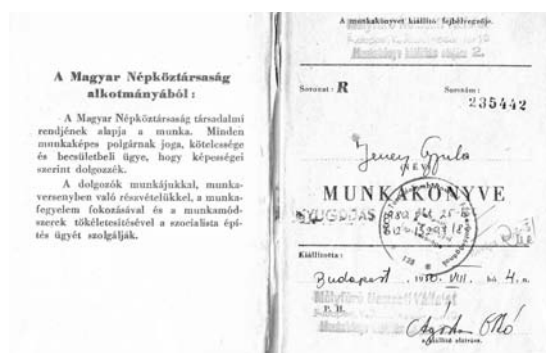 A Magyar Népköztársaság
alkotmányából :
A Magyar Népköztársaság társadalmi
rendjének alapja a munka. Minden
munkaképes polgárnak joga, kötelessége
és becsületbeli ügye, hogy képességei
szerint dolgozzék.
A dolgozók munkájukkal, munka-
versenyben való részvételükkel, a munka-
fegyelem fokozásával és a munkamód-
szerek tökéletesítésével a szocialista épí-
tés ügyét szolgálják.
A munkakönyvet kiállító fejbélyegzője.
2.
Sorozat : R
Sorszám :
235442
Jeney Gyula
MUNKAKÖNYVE
NYUGDÍJAS
Kiállította :
Budapest, 1950. VIII. hó 4. n.
Mélyfúró Nemzeti Vállalat
P. H.
a kiállító aláírása.